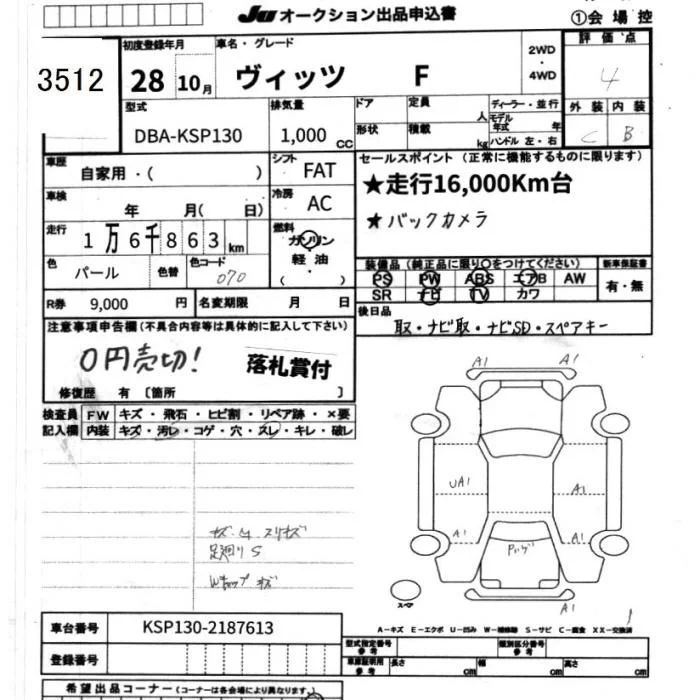 JU オークション出品申込書
①会場控
3512
初度登録年月
28 10月
車名・グレード
ヴィッツ F
2WD
・
4WD
評価点
4
型式
DBA-KSP130
排気量
1,000 CC
ドア
形状
定員 人
積載 kg
ディーラー・並行
モデル年式 年
ハンドル 左・右
外装 内装
C B
車歴
自家用・( )
シフト
FAT
車検
年 月( 日)
冷房
AC
走行
1万6千863km
燃料
ガソリン
軽油
( )
色
パール
色替
色コード
070
R券 9,000 円
名変期限 月 日
セールスポイント (正常に機能するものに限ります)
★走行16,000Km台
★バックカメラ
装備品(純正品に限り○をつけてください)
PS PW ABS エアB AW
SR ナビ TV カワ
新車保証書
有・無
後日品
取・ナビ取・ナビSD・スペアキー
注意事項申告欄(不具合内容等は具体的に記入して下さい)
0円売切!
落札賞付
修復歴 有 〔箇所 〕
検査員記入欄
FW キズ・飛石・ヒビ割・リペア跡・×要
内装 キズ・汚レ・コゲ・穴・スレ・キレ・破レ
足廻りS
A1 A1
UA1 A1
A1 A1
A1
スペア
A-キズ E-エクボ U-凹み W-補修跡 S-サビ C-腐食 XX-交換済
車台番号 KSP130-2187613
登録番号
型式指定番号 参考
類別区分番号 参考
車庫証明用 参考
長さ cm 幅 cm 高さ cm
希望出品コーナー (コーナーは各会場により異なります)